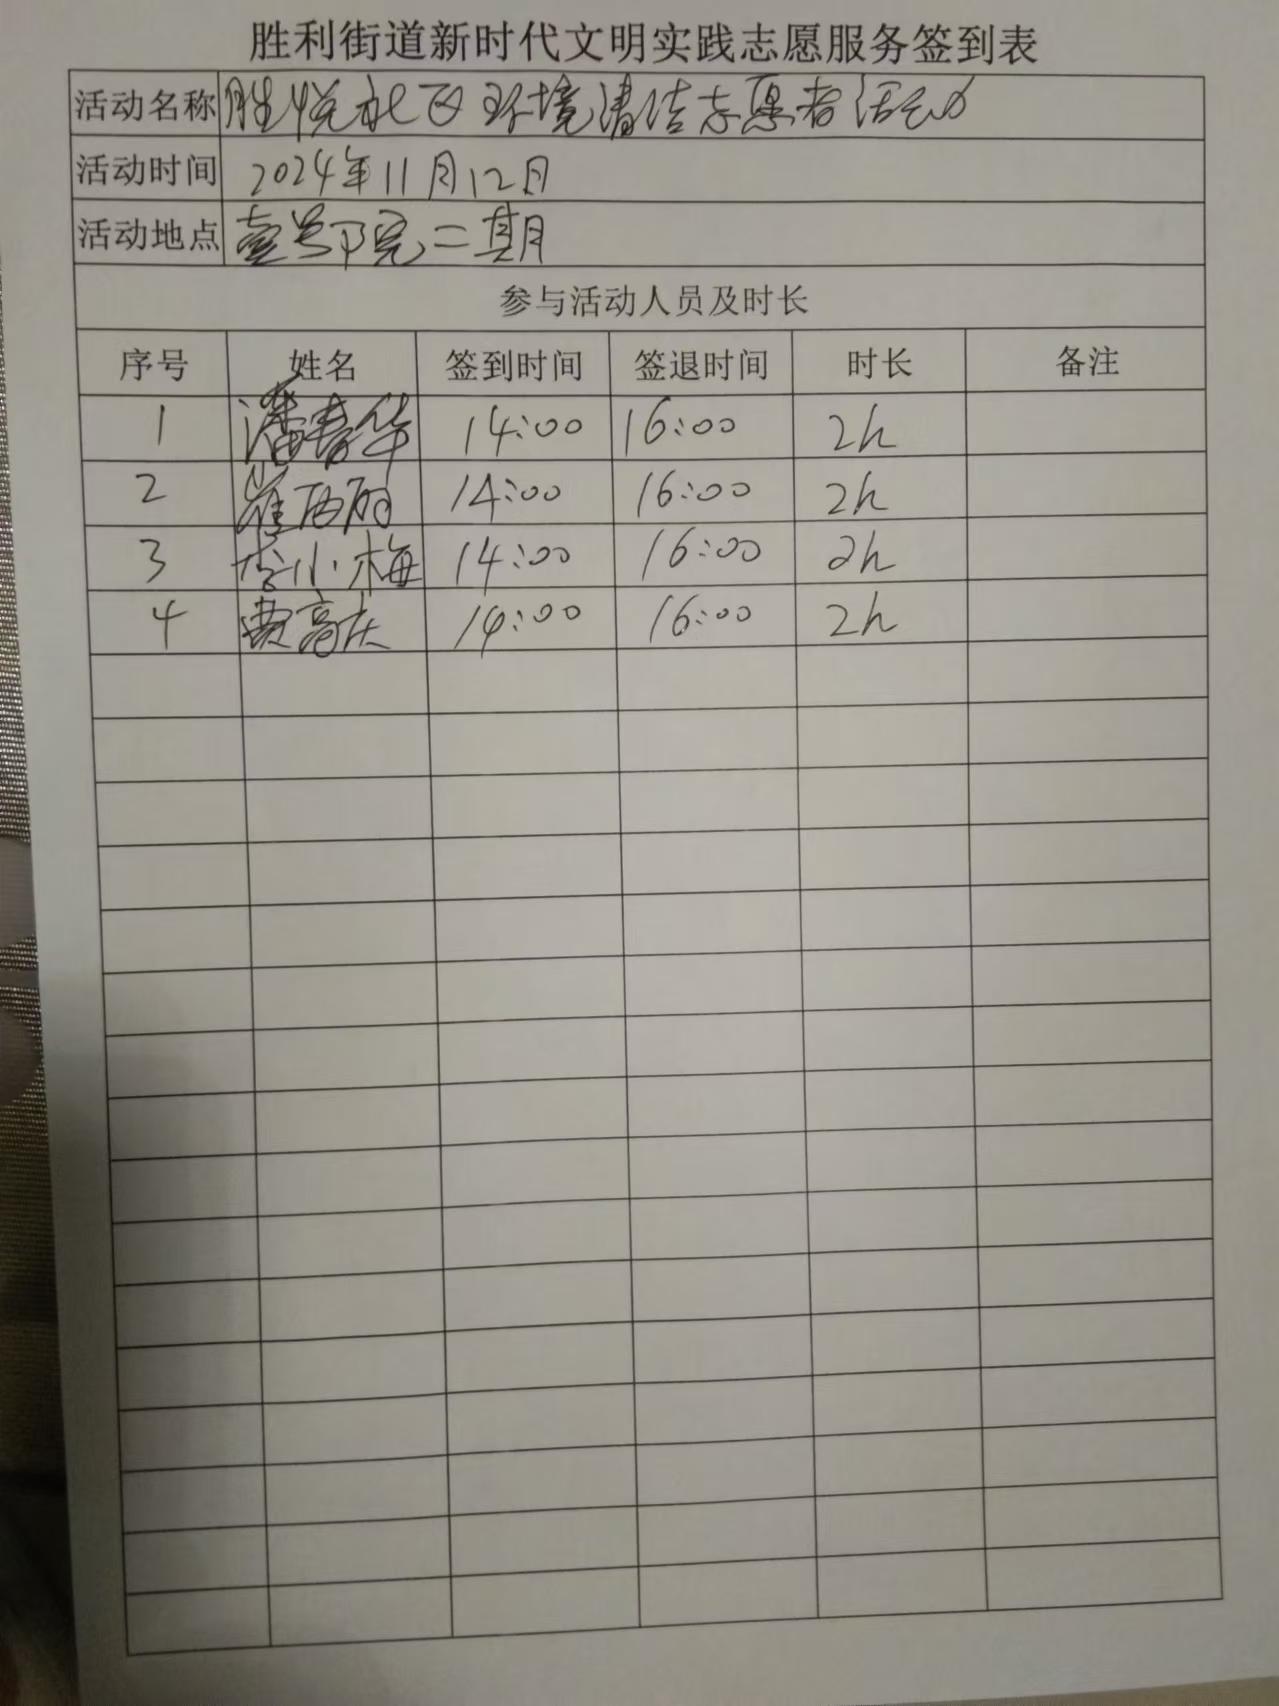 胜利街道新时代文明实践志愿服务签到表
活动名称 胜悦社区环境清洁志愿者活动
活动时间 2024年11月12日
活动地点 壹号院二期
参与活动人员及时长
序号 姓名 签到时间 签退时间 时长 备注
1 潘春华 14:00 16:00 2h
2 崔丽 14:00 16:00 2h
3 李小梅 14:00 16:00 2h
4 费高庆 14:00 16:00 2h